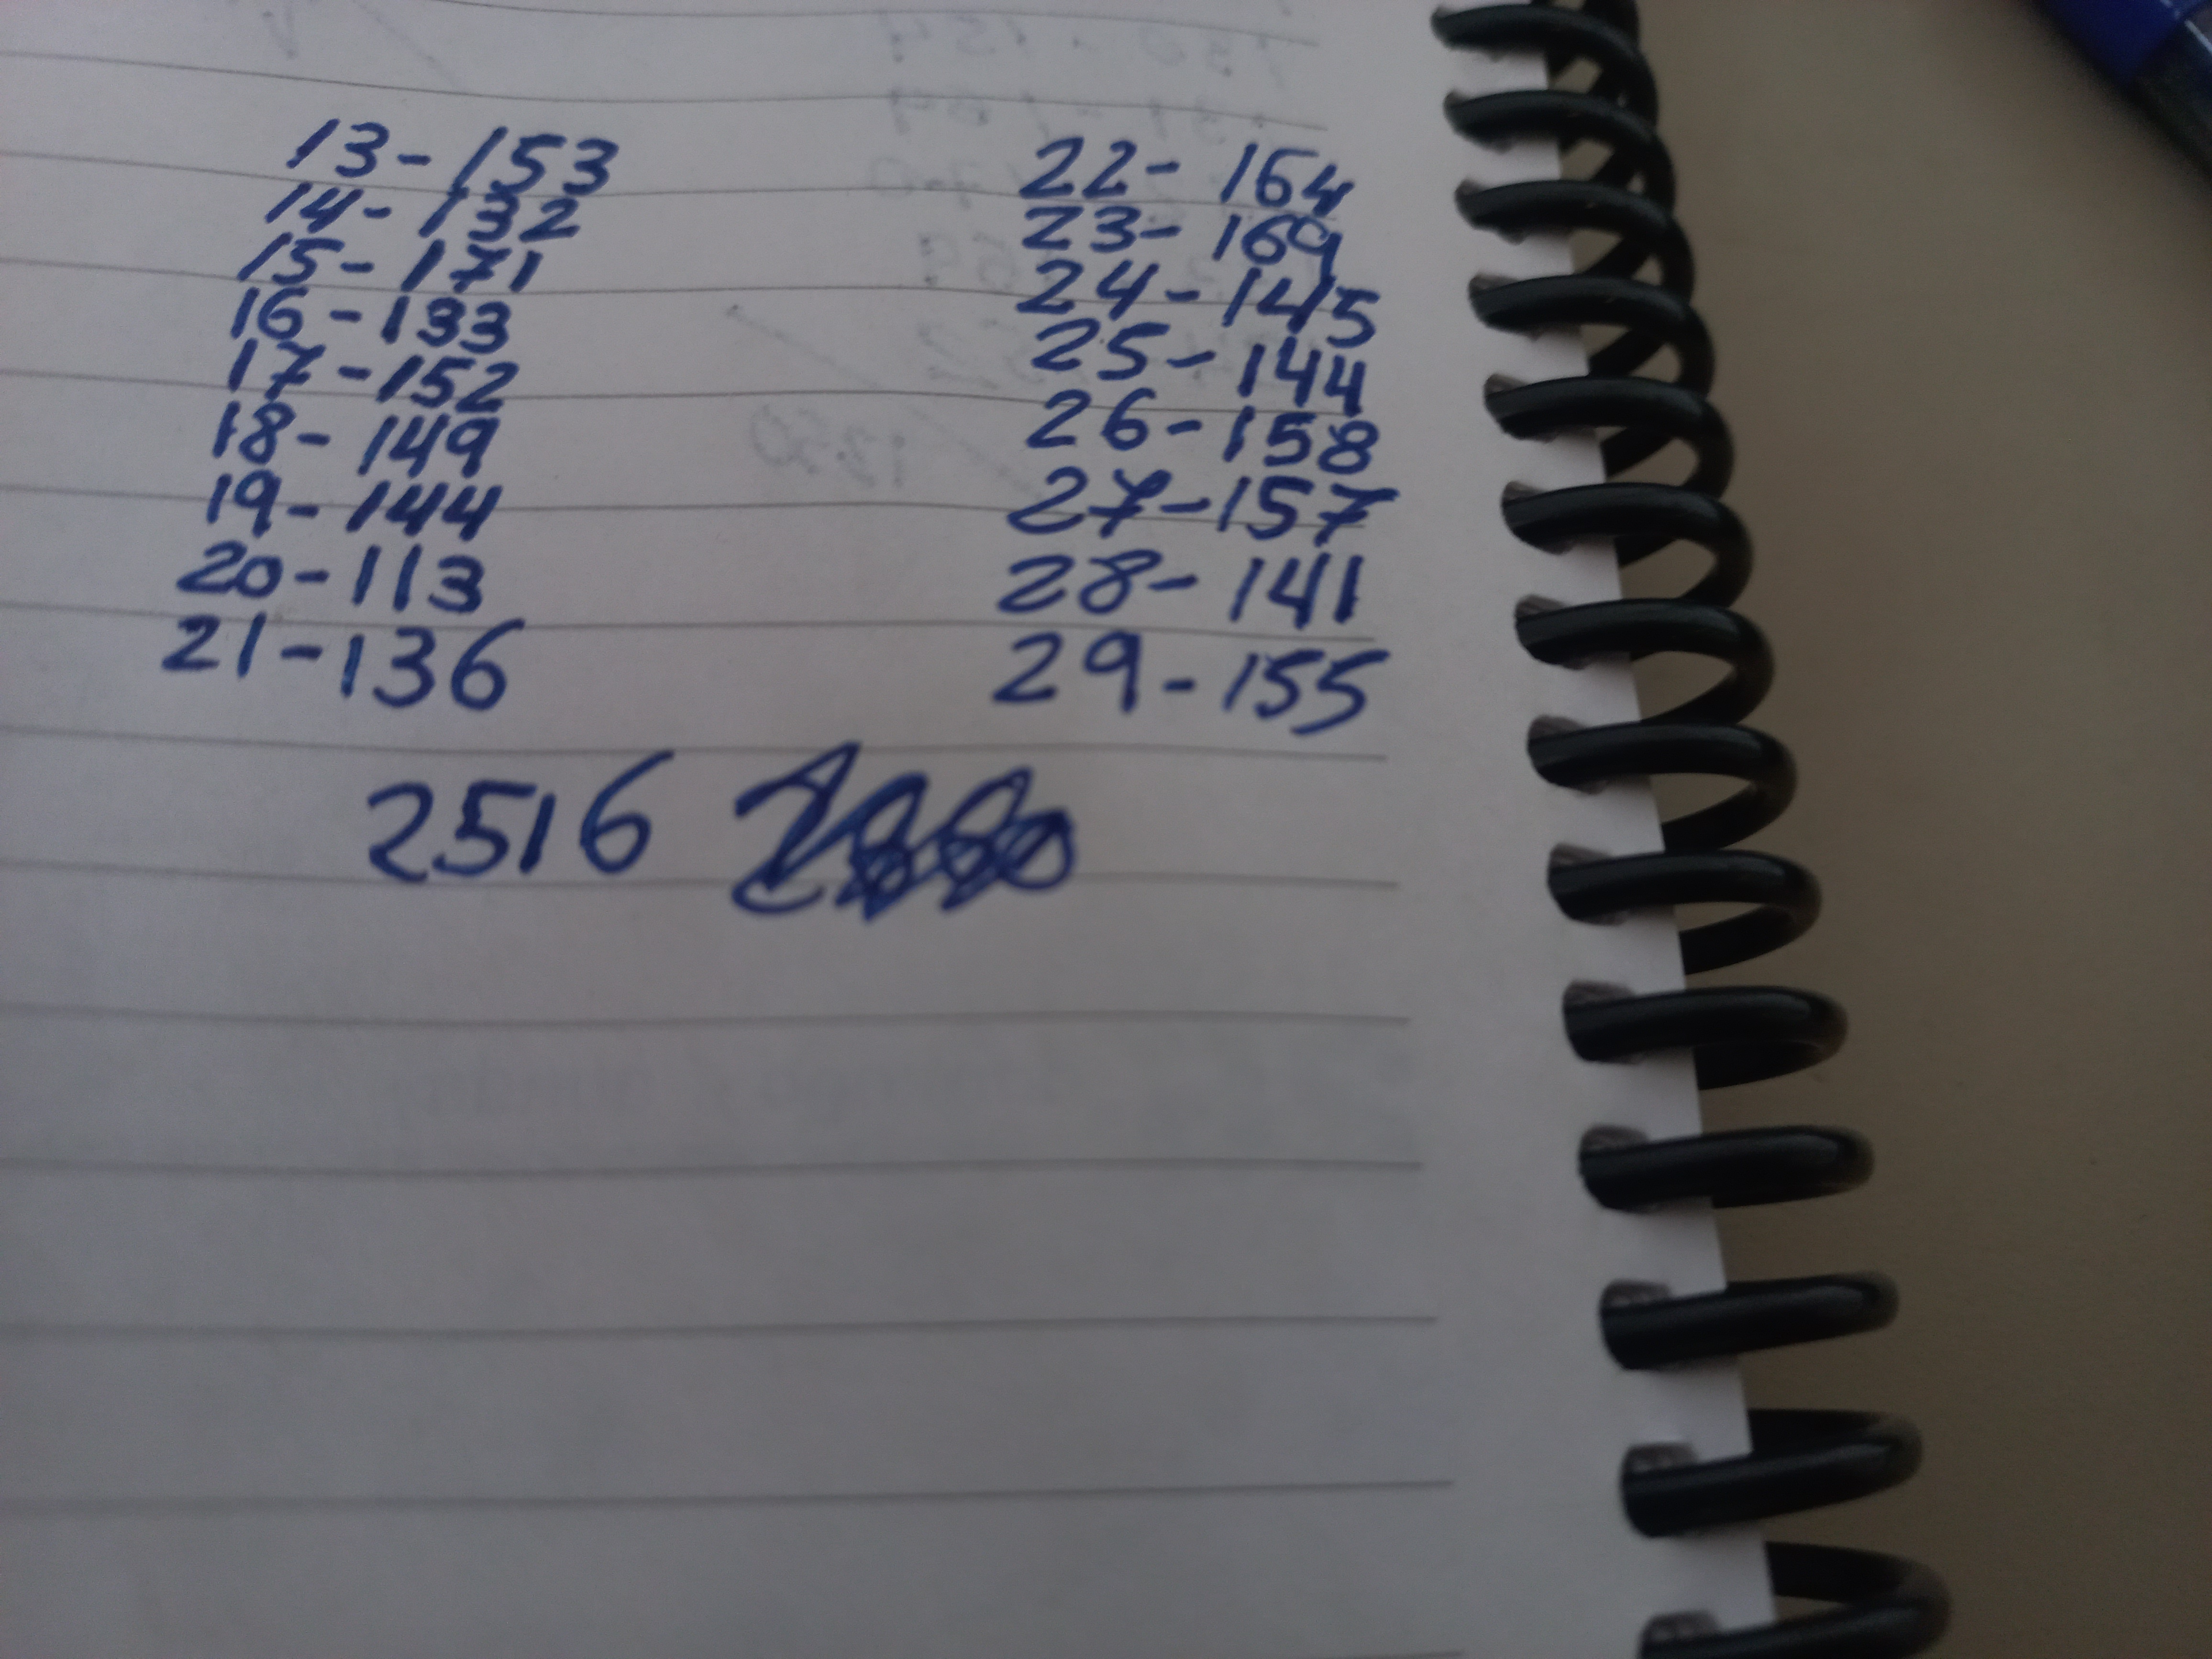 13-153
14-132
15-171
16-133
17-152
18-149
19-144
20-113
21-136
22-164
23-169
24-145
25-144
26-158
27-157
28-141
29-155
2516